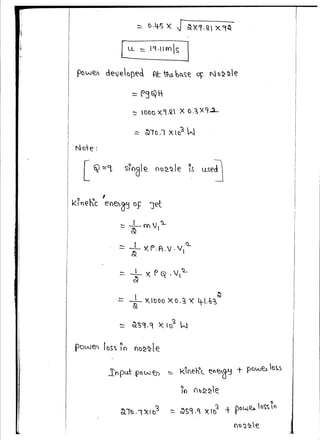 = 0.45 x √2x9.81 x 92
u = 19.11m/s
Power developed At the base of Nozzle
= ρgQH
= 1000 x 9.81 x 0.3 x 92
= 270.7 x 10³ W
Note:
[Q = q single nozzle is used]
kinetic energy of jet
= 1/2 m V₁²
= 1/2 x ρ.A.V.V₁²
= 1/2 x ρ Q . V₁²
= 1/2 x 1000 x 0.3 x 41.63²
= 259.9 x 10³ W
Power loss in nozzle
Input power = kinetic energy + power loss
in nozzle
270.7x10³ = 259.9 x 10³ + power loss in
nozzle